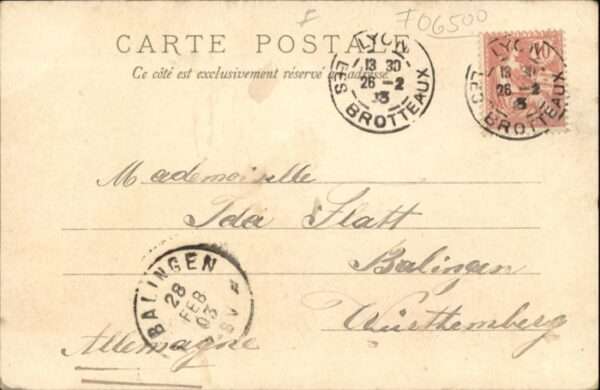 706500
CARTE POSTALE
Ce côté est exclusivement réservé à l'adresse
LYON
13 30
26 - 2
03
LES BROTTEAUX
LYON
13 30
26 - 2
03
LES BROTTEAUX
Mademoiselle
Ida Statt
Balingen
Württhemberg
Allemagne
BALINGEN
28
FEB
03